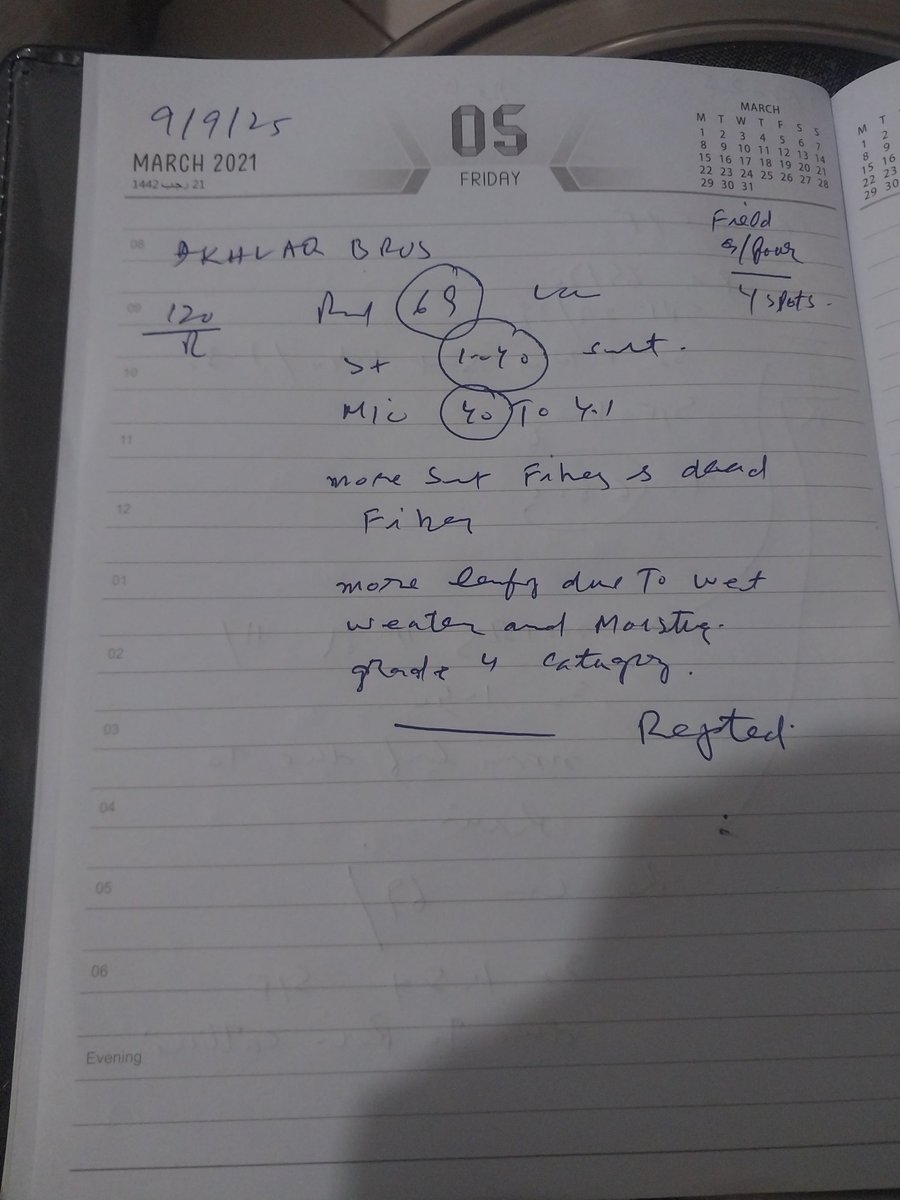 9/9/25
MARCH 2021
1442 رجب 21
05
FRIDAY
MARCH
M T W T F S S
1 2 3 4 5 6 7
8 9 10 11 12 13 14
15 16 17 18 19 20 21
22 23 24 25 26 27 28
29 30 31
M T
1 2
8 9
15 16
22 23
29 30
Field
4 spots.
08 AKHLAQ BROS
09
120
R
Rd 69
10
St 1-40
Mic 40 To 4.1
11
more Fiber dead
12
Fiber
01
more leafy due To wet
weater and Moistre.
02
grade 4 catagory.
03
Rejeted.
04
05
06
Evening